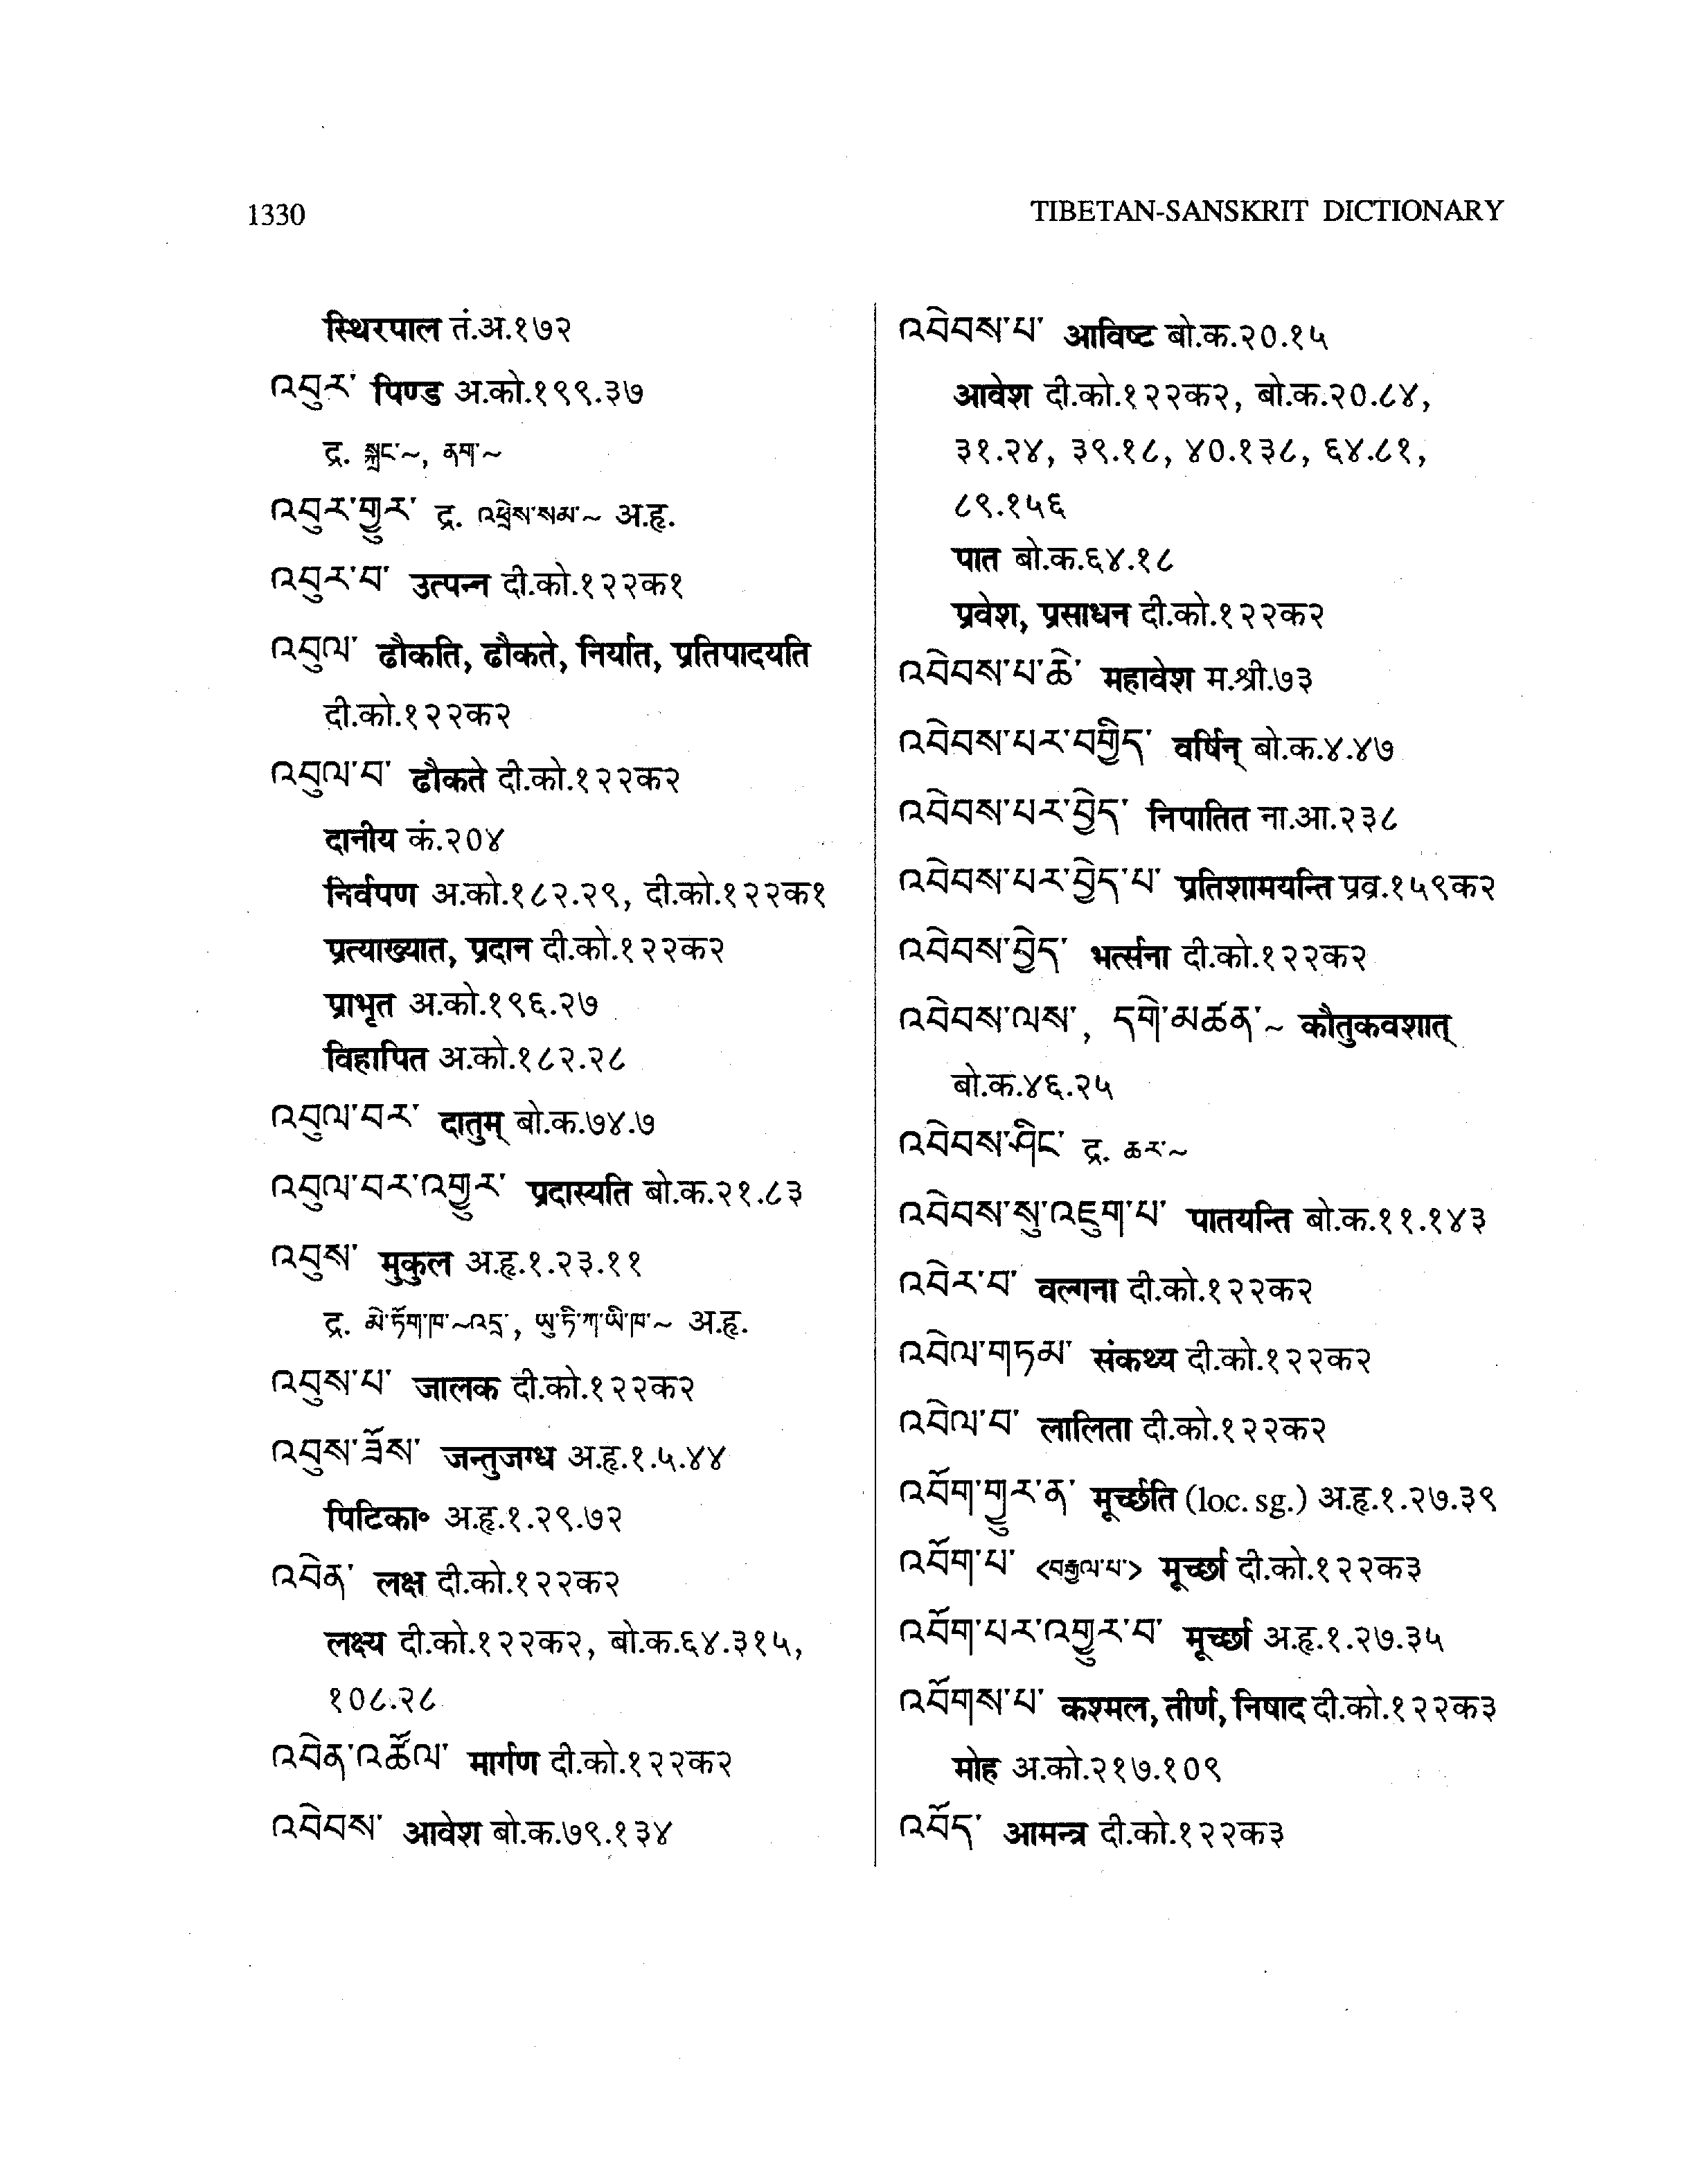 1330
TIBETAN-SANSKRIT DICTIONARY
स्थिरपाल तं.अ.१७२
འབུར་ पिण्ड अ.को.१९९.३७
द्र. སྐྲང་~, ནག་~
འབུར་གྱུར་ द्र. འཕྲེས་སམ་~ अ.हृ.
འབུར་བ་ उत्पन्न दी.को.१२२क१
འབུལ་ ढौकति, ढौकते, निर्यात, प्रतिपादयति
दी.को.१२२क२
འབུལ་བ་ ढौकते दी.को.१२२क२
दानीय कं.२०४
निर्वपण अ.को.१८२.२९, दी.को.१२२क१
प्रत्याख्यात, प्रदान दी.को.१२२क२
प्राभृत अ.को.१९६.२७
विहापित अ.को.१८२.२८
འབུལ་བར་ दातुम् बो.क.७४.७
འབུལ་བར་འགྱུར་ प्रदास्यति बो.क.२१.८३
འབུས་ मुकुल अ.हृ.१.२३.११
द्र. མེ་ཏོག་ཁ་~འདྲ་, ཡུ་ཏི་ཀ་ཡི་ཁ་~ अ.हृ.
འབུས་པ་ जालक दी.को.१२२क२
འབུས་ཟོས་ जन्तुजग्ध अ.हृ.१.५.४४
पिटिका॰ अ.हृ.१.२९.७२
འབེན་ लक्ष दी.को.१२२क२
लक्ष्य दी.को.१२२क२, बो.क.६४.३१५,
१०८.२८
འབེན་འཚོལ་ मार्गण दी.को.१२२क२
འབེབས་ आवेश बो.क.७९.१३४
འབེབས་པ་ आविष्ट बो.क.२०.१५
आवेश दी.को.१२२क२, बो.क.२०.८४,
३१.२४, ३९.१८, ४०.१३८, ६४.८१,
८९.१५६
पात बो.क.६४.१८
प्रवेश, प्रसाधन दी.को.१२२क२
འབེབས་པ་ཆེ་ महावेश म.श्री.७३
འབེབས་པར་བགྱིད་ वर्षिन् बो.क.४.४७
འབེབས་པར་བྱེད་ निपातित ना.आ.२३८
འབེབས་པར་བྱེད་པ་ प्रतिशामयन्ति प्रव्र.१५९क२
འབེབས་བྱེད་ भर्त्सना दी.को.१२२क२
འབེབས་ལས་, དགེ་མཚན་~ कौतुकवशात्
बो.क.४६.२५
འབེབས་ཤིང་ द्र. ཆར་~
འབེབས་སུ་འཇུག་པ་ पातयन्ति बो.क.११.१४३
འབེར་བ་ वल्गना दी.को.१२२क२
འབེལ་གཏམ་ संकथ्य दी.को.१२२क२
འབེལ་བ་ लालिता दी.को.१२२क२
འབོག་གྱུར་ན་ मूर्च्छति (loc. sg.) अ.हृ.१.२७.३९
འབོག་པ་ <བརྒྱལ་པ་> मूर्च्छा दी.को.१२२क३
འབོག་པར་འགྱུར་བ་ मूर्च्छा अ.हृ.१.२७.३५
འབོགས་པ་ कश्मल, तीर्ण, निषाद दी.को.१२२क३
मोह अ.को.२१७.१०९
འབོད་ आमन्त्र दी.को.१२२क३